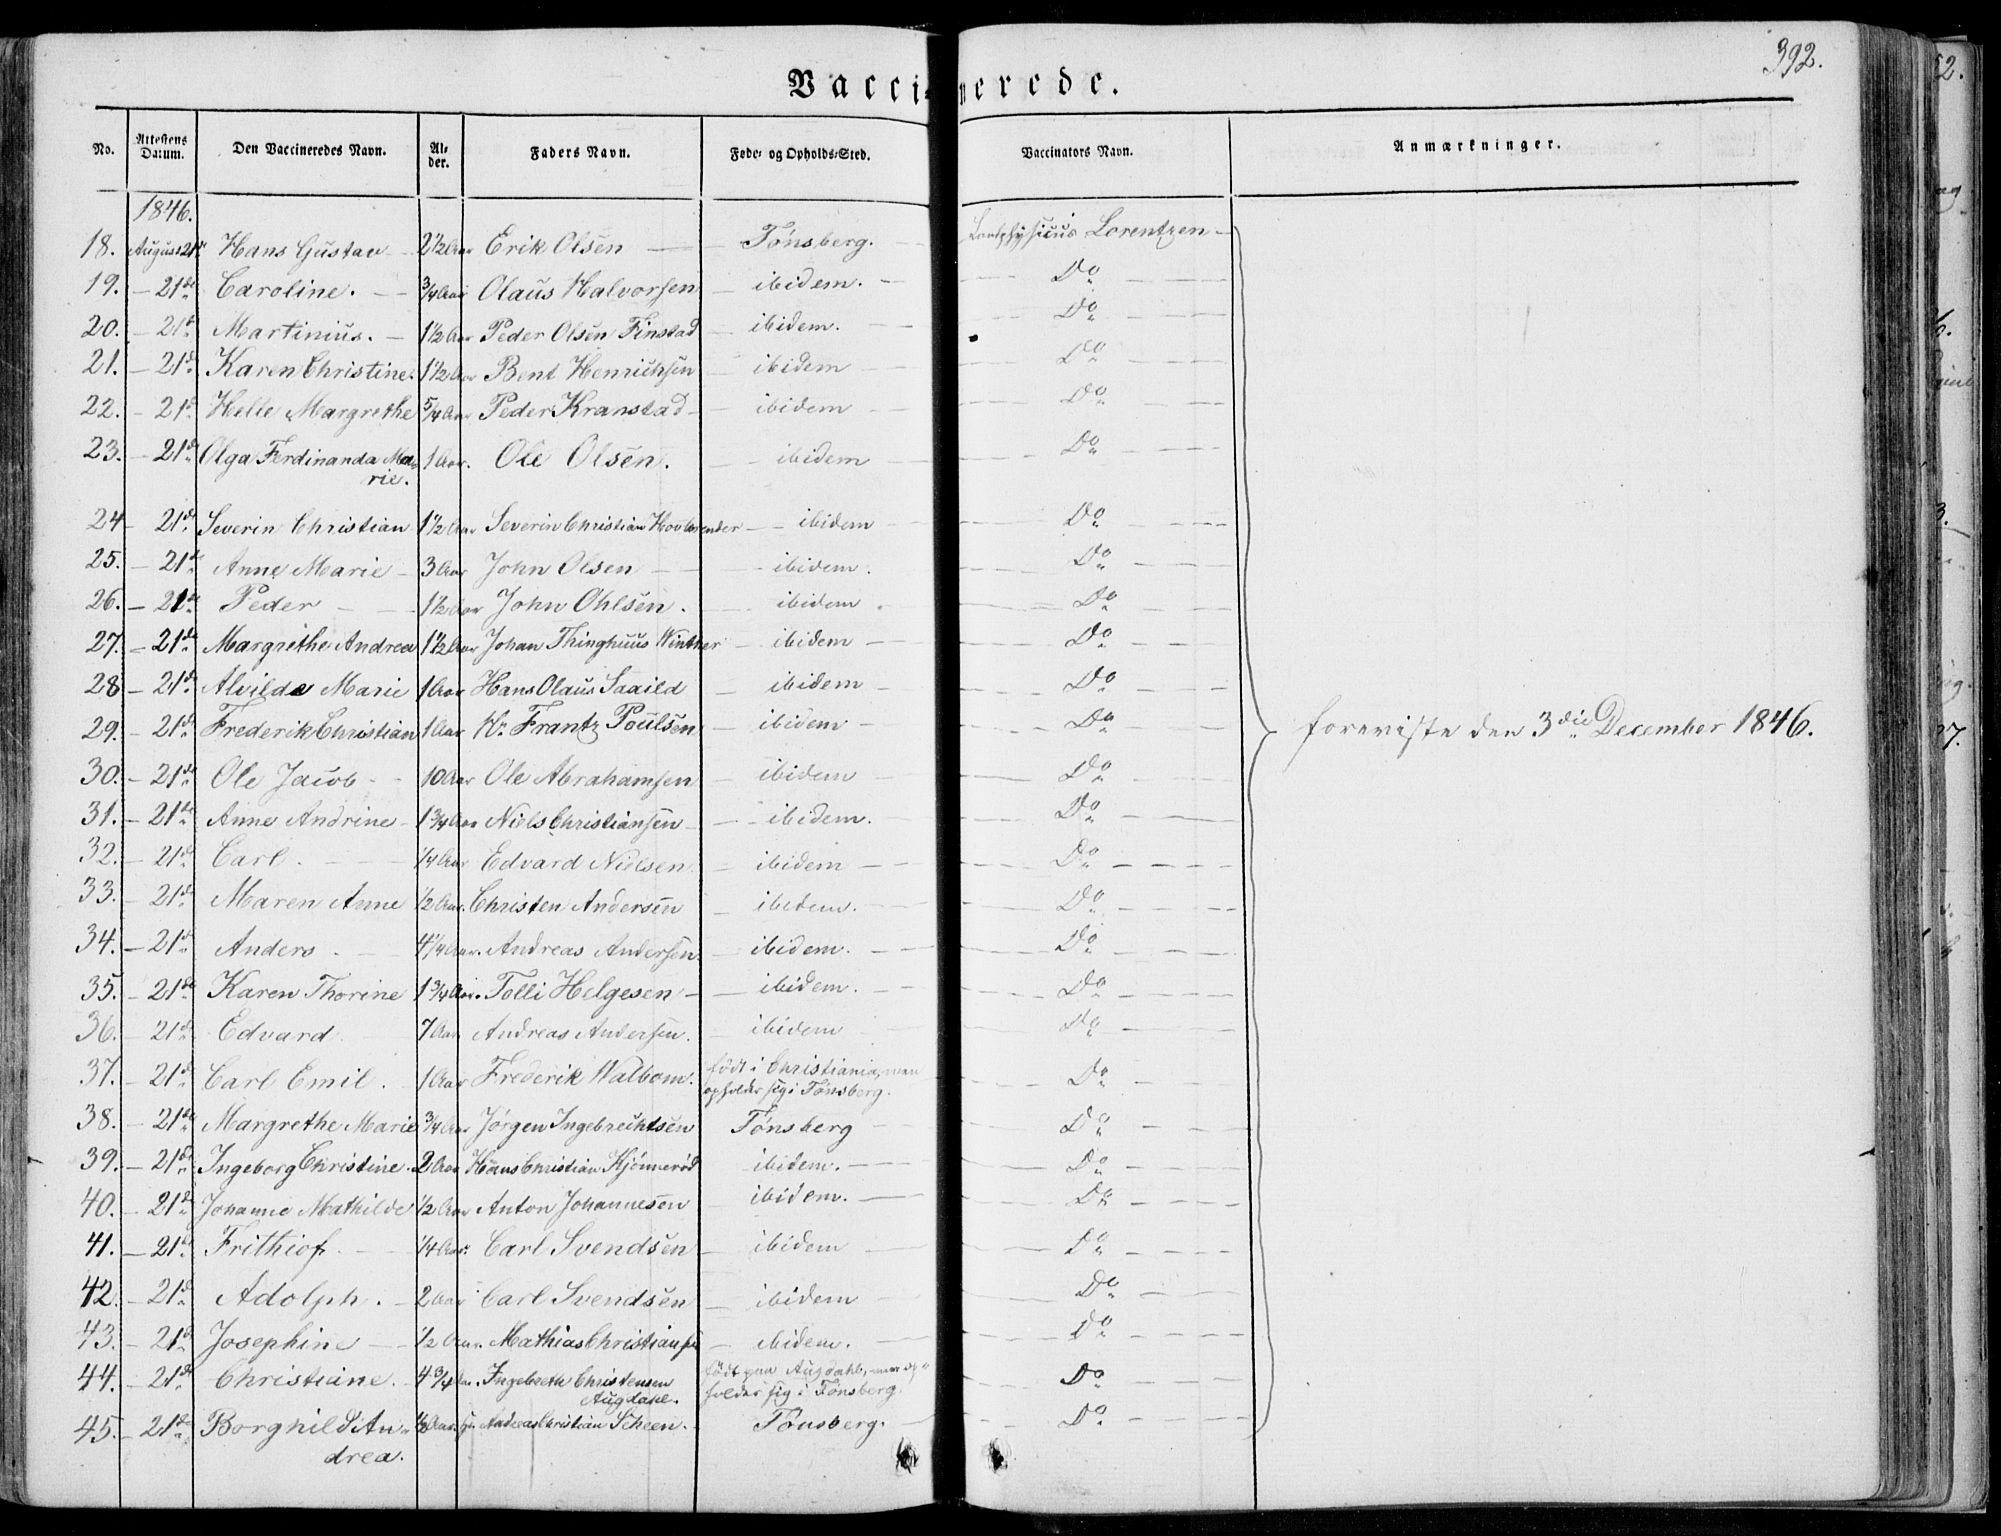 392.
Vaccinerede.
No. Attestens Datum. Den Vaccineredes Navn. Alder. Faders Navn. Føde- og Opholds-Sted. Vaccinators Navn. Anmærkninger.
1846.
18. August 21de Hans Gustav 2 1/2 Aar Erik Olsen Tønsberg. Landphysicus Lorentzen
19. 21de Caroline. 3/4 Aar Olaus Halvorsen ibidem. Do
20. 21de Martinius. 1 1/2 Aar Peder Olsen Finstad ibidem. Do
21. 21de Karen Christine. 1 1/2 Aar Bent Henrichsen ibidem Do
22. 21de Helle Margrethe 5/4 Aar Peder Kranstad ibidem Do
23. 21de Olga Ferdinanda Ma- 1 Aar. Ole Olsen. ibidem Do
rie.
24 21de Severin Christian 1 1/2 Aar Severin Christian ibidem Do
25. 21de Anne Marie 3 Aar John Olsen ibidem. Do
26. 21de Peder 1 1/2 Aar John Ohlsen. ibidem Do
27. 21de Margrethe Andrea 1 1/2 Aar Johan Thinghuus Winther ibidem Do
28 21de Alvilde Marie 1 Aar Hans Olaus Saaild ibidem Do
29. 21de Frederik Christian 1 Aar Hr. Frantz Poulsen ibidem Do foreviste den 3die December 1846.
30. 21de Ole Jacob 10 Aar Ole Abrahamsen ibidem Do
31. 21de Anne Andrine 1 3/4 Aar Niels Christiansen ibidem. Do
32. 21de Carl. 1/4 Aar Edvard Nielsen ibidem Do
33. 21de Maren Anne 1/2 Aar. Christen Andersen ibidem. Do
34. 21de Anders 4 1/4 Aar. Andreas Andersen ibidem. Do
35. 21de Karen Thorine 1 3/4 Aar. Tolli Helgesen ibidem. Do
36. 21de Edvard 7 Aar Andreas Andersen. ibidem Do
37. 21de Carl Emil. 1 Aar Frederik Walbom. født i Christiania, men Do
opholder sig i Tønsberg.
38. 21de Margrethe Marie 3/4 Aar Jørgen Ingebrechtsen Tønsberg Do
39. 21de Ingeborg Christine. 2 Aar Hans Christian Kjønnerød ibidem. Do
40. 21de Johanne Mathilde 1/2 Aar Anton Johannesen ibidem. Do
41. 21de Frithiof. 1/4 Aar. Carl Svendsen ibidem Do
42. 21de Adolph. 2 Aar Carl Svendsen ibidem Do
43. 21de Josephine 1/2 Aar. Mathias Christiansen ibidem. Do
44. 21de Christiane. 4 3/4 Aar. Ingebreth Christensen født paa Augdahl, men op- Do
Augdahl. holder sig i Tønsberg.
45. 21de Borghild An- Andreas Christian Scheen. Tønsberg. Do
drea.